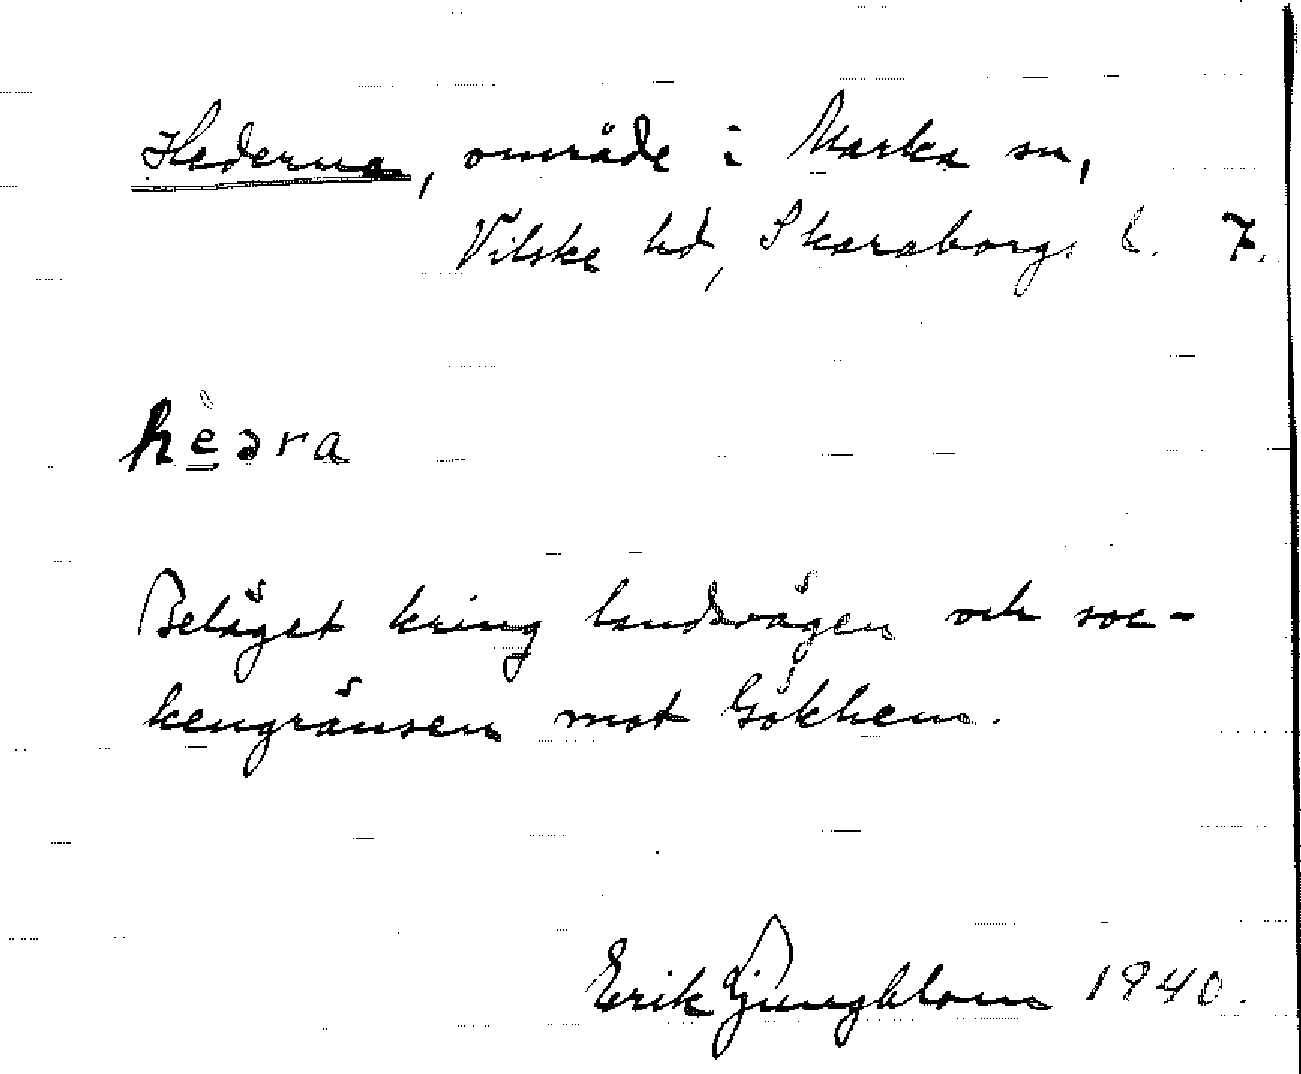 Hederna, område i Marka sn,
Vilske hd, Skaraborgs l. 7.
hèəra
Beläget kring landsvägen och soc-
kengränsen mot Gökhem.
Erik Ljungblom 1940.